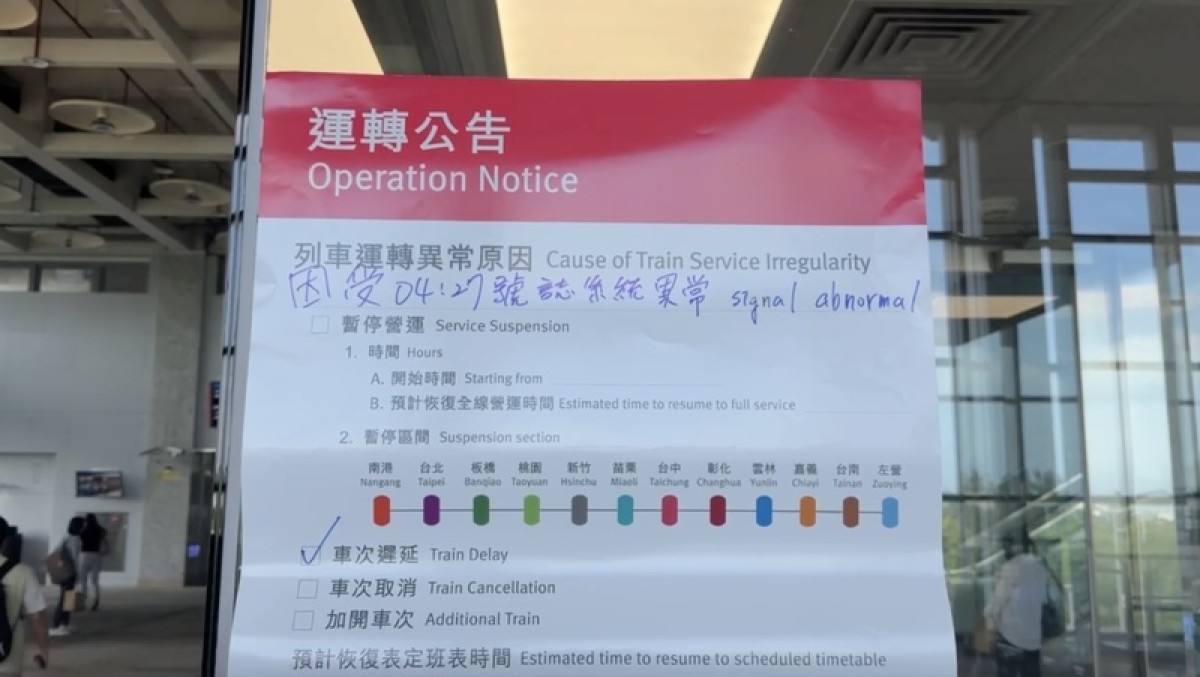 運轉公告
Operation Notice
列車運轉異常原因 Cause of Train Service Irregularity
因受04:27號誌系統異常 signal abnormal
暫停營運 Service Suspension
1. 時間 Hours
A. 開始時間 Starting from
B. 預計恢復全線營運時間 Estimated time to resume to full service
2. 暫停區間 Suspension section
南港 台北 板橋 桃園 新竹 苗栗 台中 彰化 雲林 嘉義 台南 左營
Nangang Taipei Banqiao Taoyuan Hsinchu Miaoli Taichung Changhua Yunlin Chiayi Tainan Zuoying
車次遲延 Train Delay
車次取消 Train Cancellation
加開車次 Additional Train
預計恢復表定班表時間 Estimated time to resume to scheduled timetable